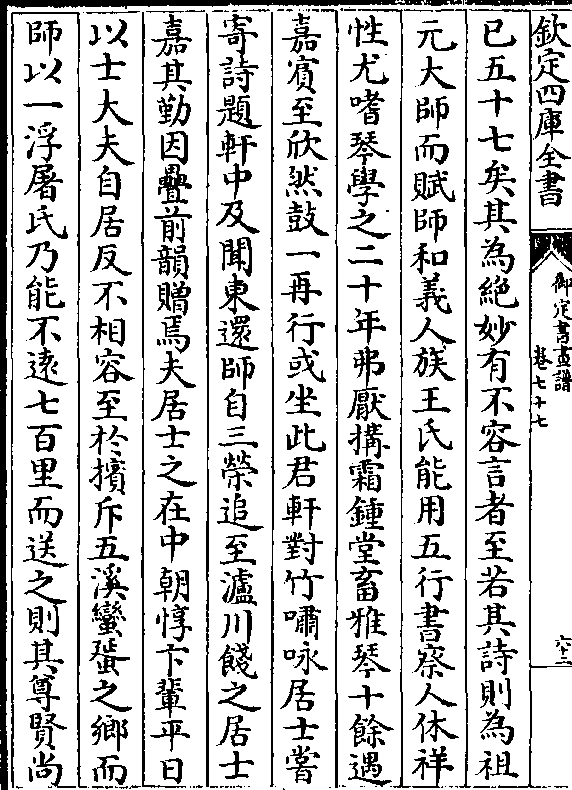 欽定四庫全書
御定書畫譜
卷七十七
六十二
已五十七矣其為絶妙有不容言者至若其詩則為祖
元大師而賦師和義人族王氏能用五行書察人休祥
性尤嗜琴學之二十年弗厭搆霜鍾堂畜雅琴十餘遇
嘉賓至欣然鼓一再行或坐此君軒對竹嘯咏居士嘗
寄詩題軒中及聞東還師自三榮追至瀘川餞之居士
嘉其勤因疊前韻贈焉夫居士之在中朝惇卞輩平日
以士大夫自居反不相容至於擯斥五溪蠻蜑之鄉而
師以一浮屠氏乃能不逺七百里而送之則其尊賢尚